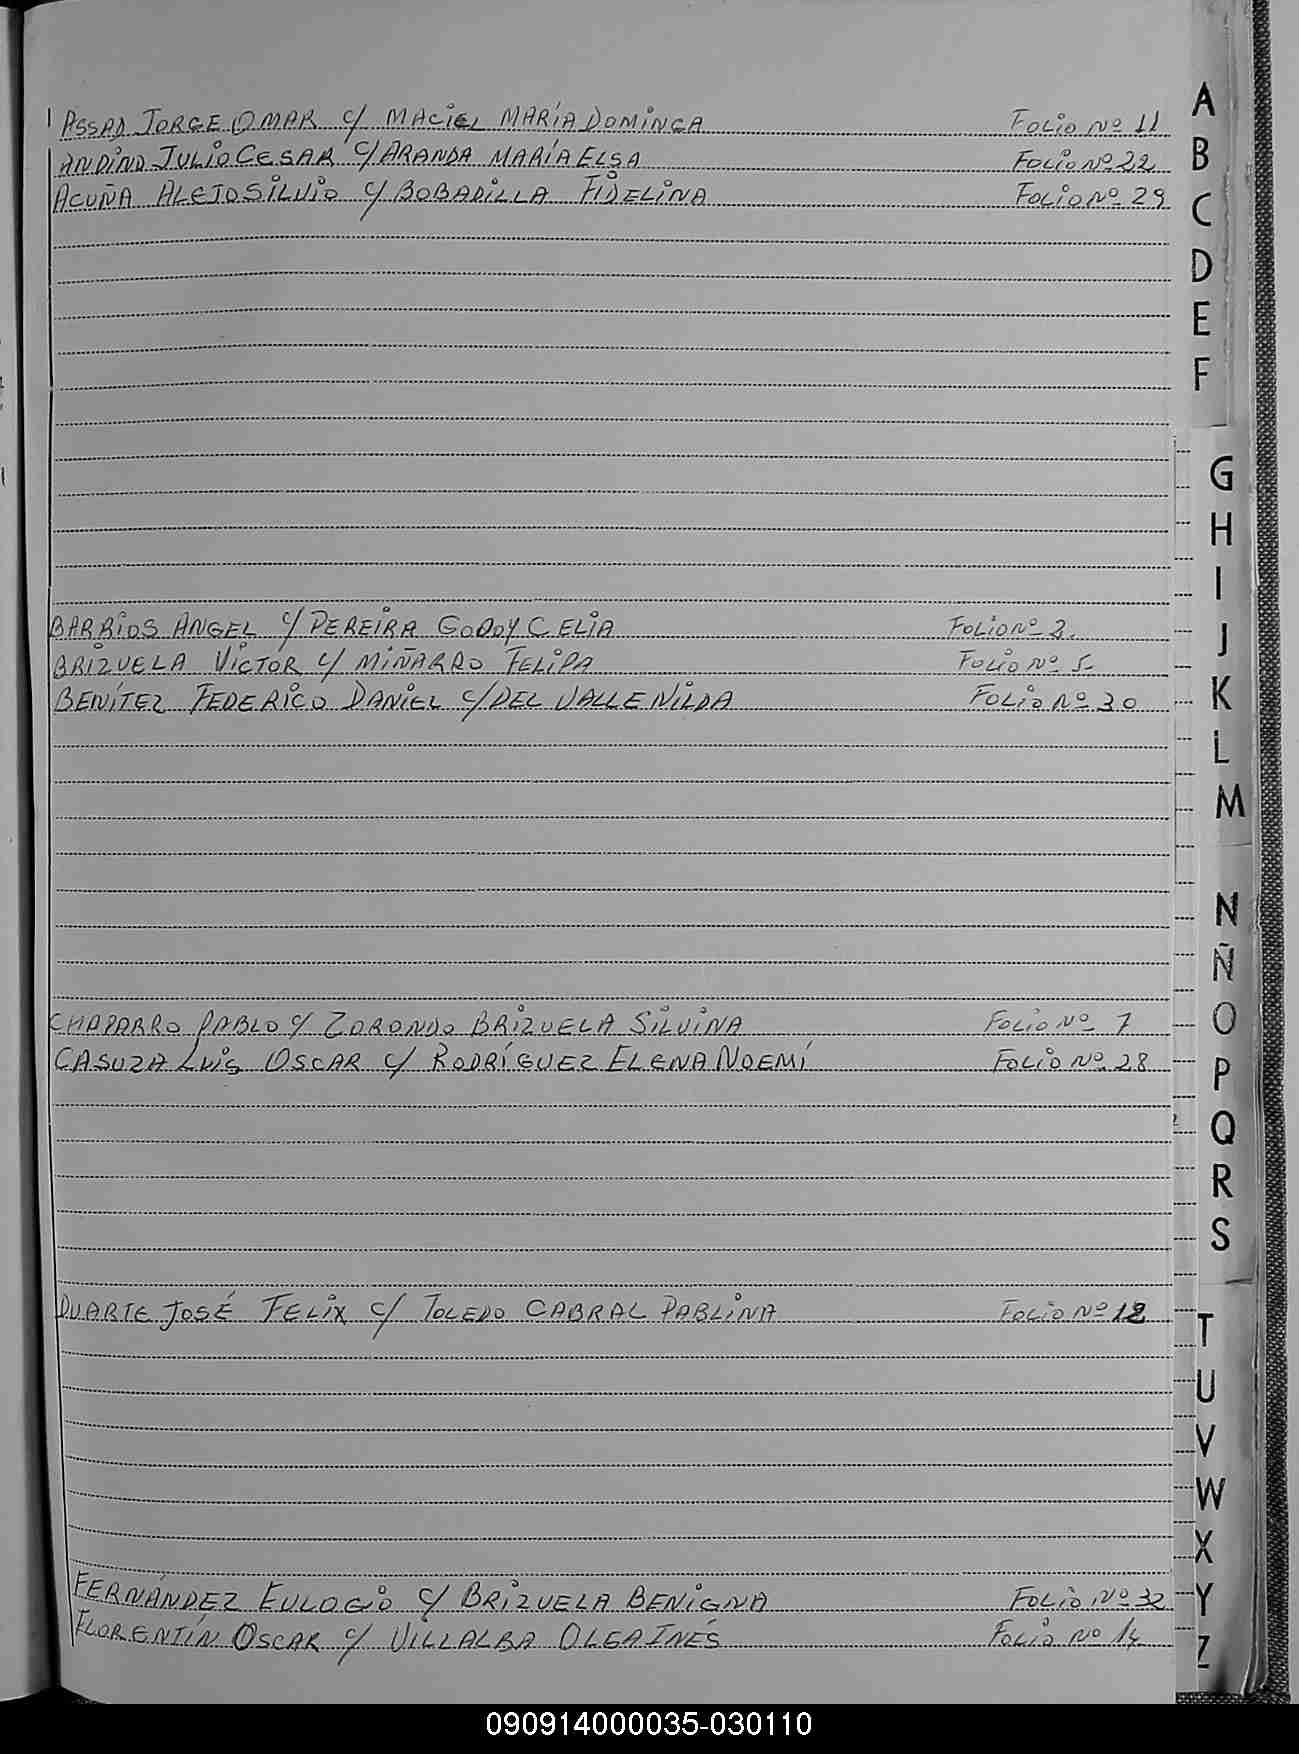 ASSAD JORGE OMAR c/ MACIEL MARÍA DOMINGA FOLIO Nº 11
ANDINO JULIO CESAR c/ ARANDA MARÍA ELSA FOLIO Nº 22
ACUÑA ALEJO SILVIO c/ BOBADILLA FIDELINA FOLIO Nº 29
BARRIOS ANGEL c/ PEREIRA GODOY CELIA FOLIO Nº 3
BRIZUELA VICTOR c/ MIÑARRO FELIPA FOLIO Nº 5
BENÍTEZ FEDERICO DANIEL c/ DEL VALLE NILDA FOLIO Nº 30
CHAPARRO PABLO c/ ZORONDO BRIZUELA SILVINA FOLIO Nº 7
CASUZA LUIS OSCAR c/ RODRÍGUEZ ELENA NOEMÍ FOLIO Nº 28
DUARTE JOSÉ FELIX c/ TOLEDO CABRAL PABLINA FOLIO Nº 12
FERNÁNDEZ EULOGIO c/ BRIZUELA BENIGNA FOLIO Nº 32
FLORENTÍN OSCAR c/ VILLALBA OLGA INÉS FOLIO Nº 14
A
B
C
D
E
F
G
H
I
J
K
L
M
N
Ñ
O
P
Q
R
S
T
U
V
W
X
Y
Z
090914000035-030110